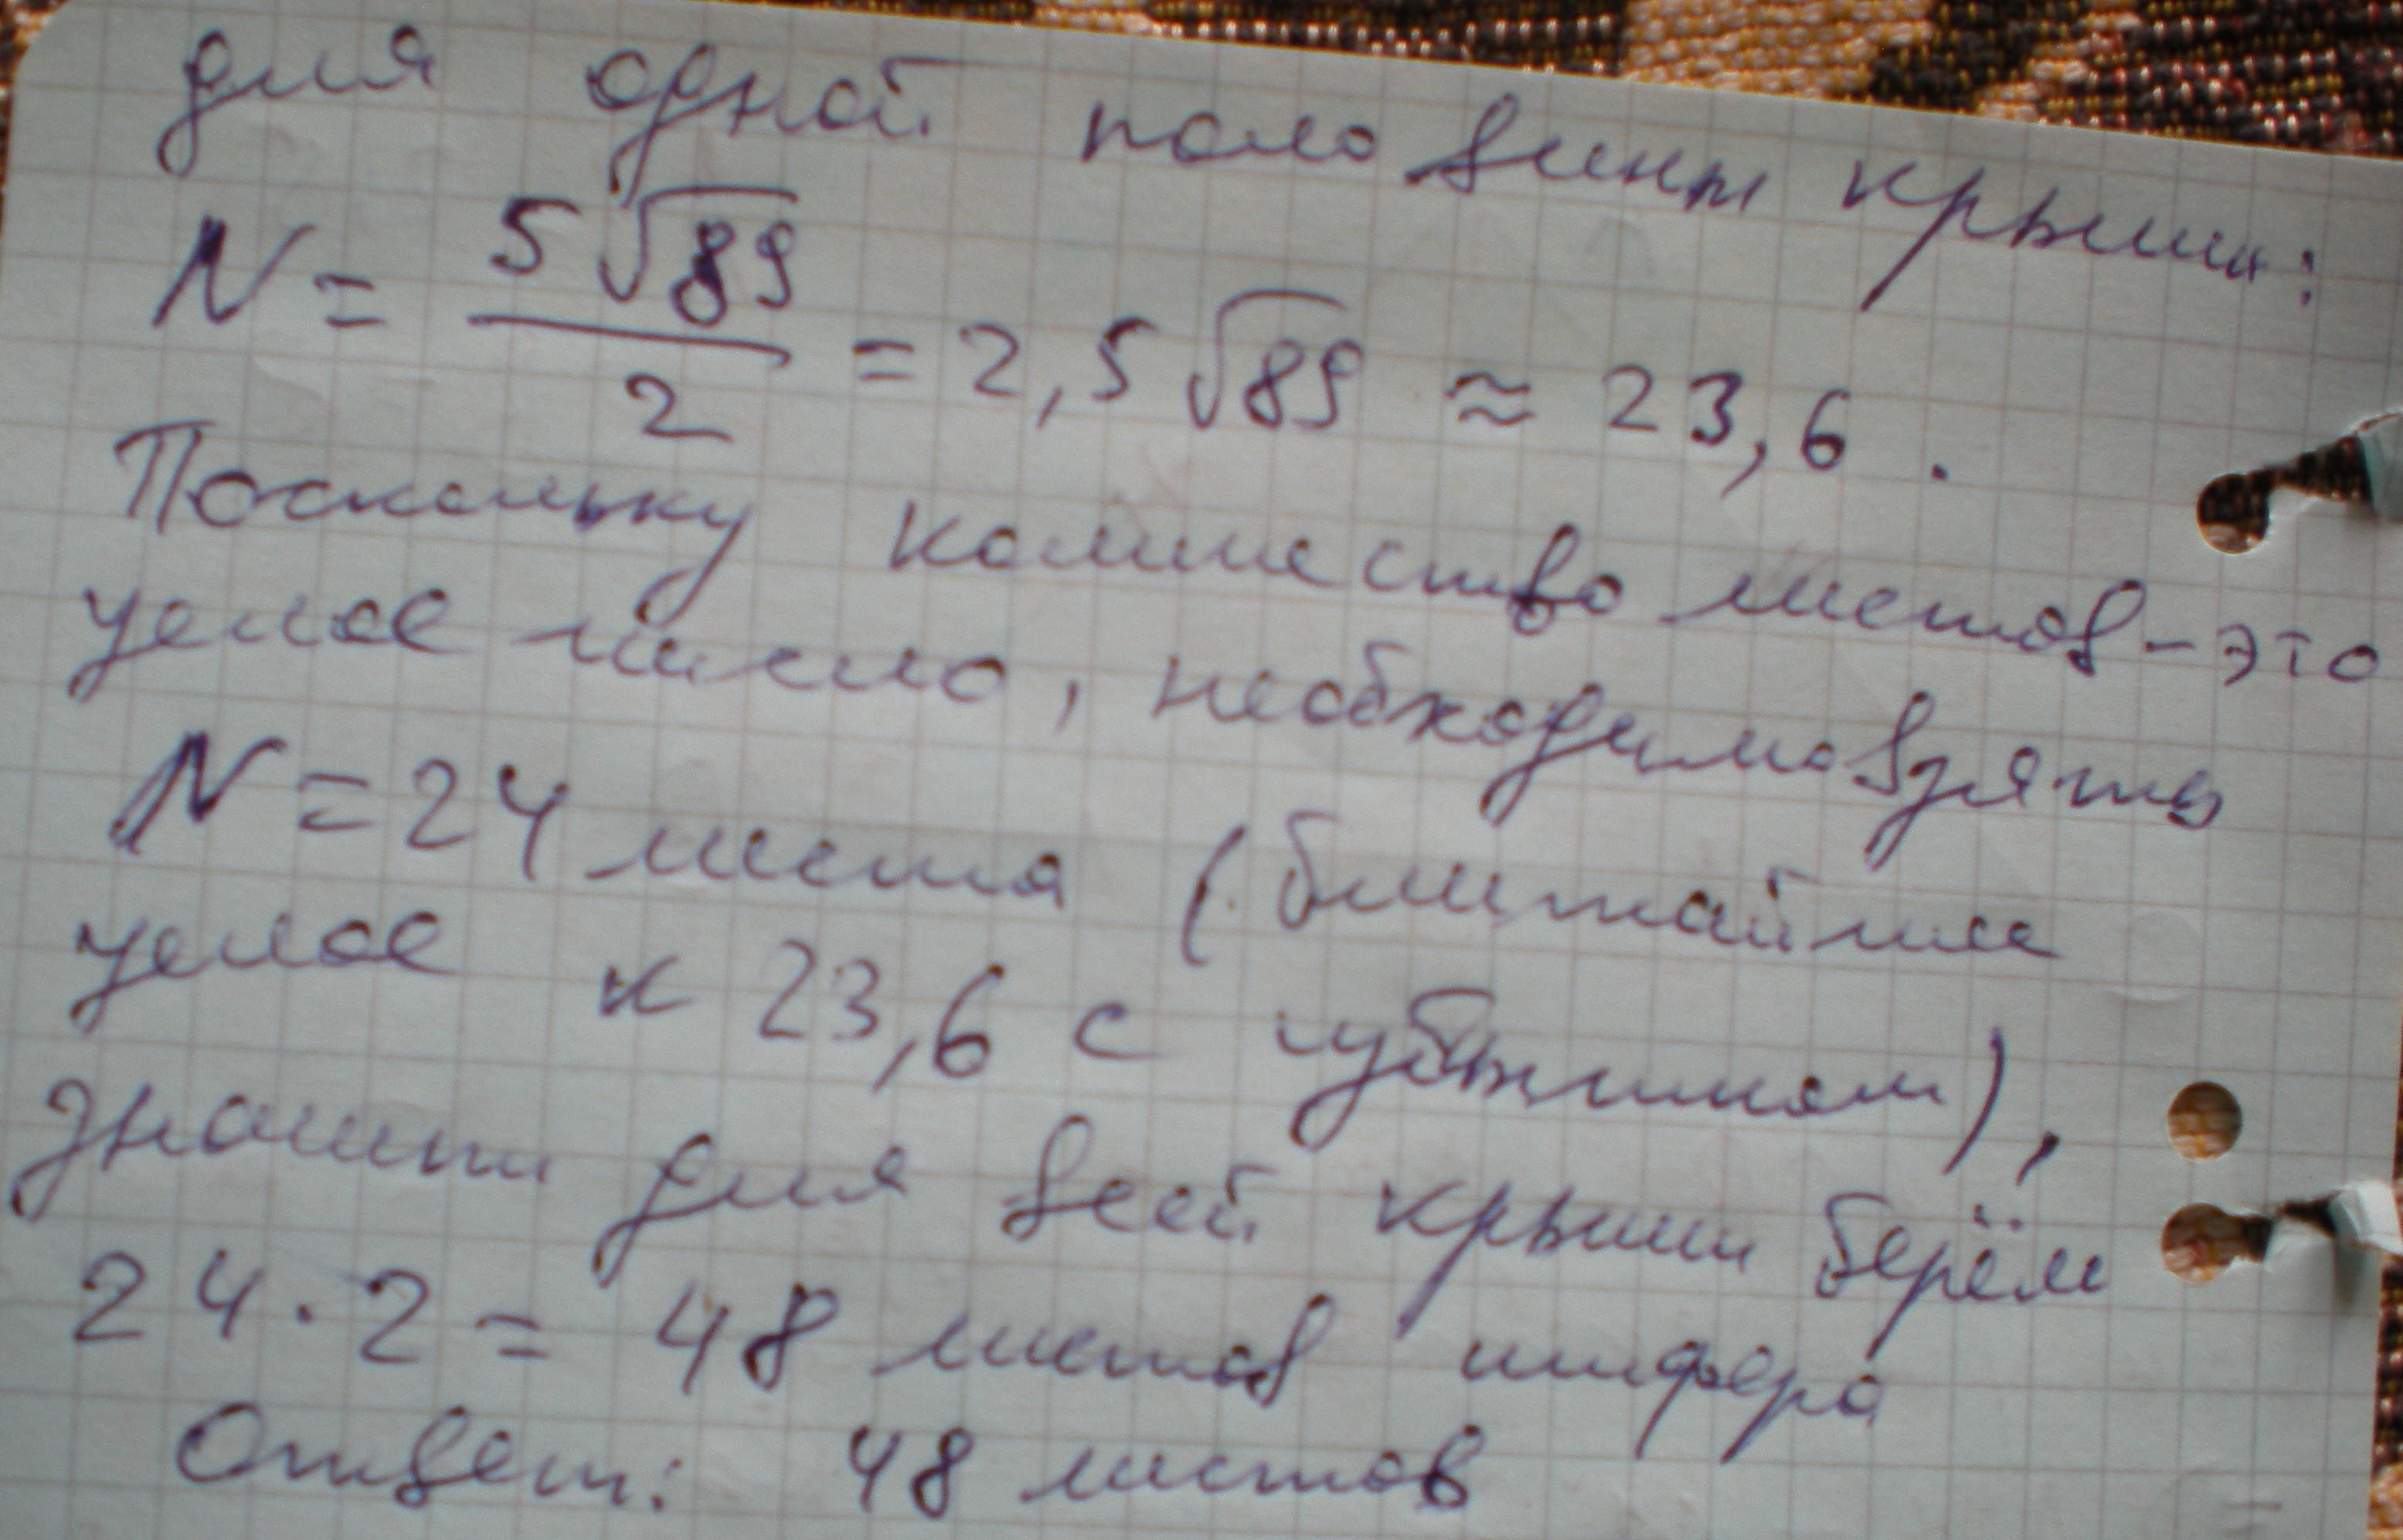 для одной половины крыши:
N = 5√89/2 = 2,5√89 ≈ 23,6.
Поскольку количество листов – это
целое число, необходимо взять
N = 24 листа (ближайшее
целое к 23,6 с избытком),
значит для всей крыши берём
24 · 2 = 48 листов шифера
Ответ: 48 листов